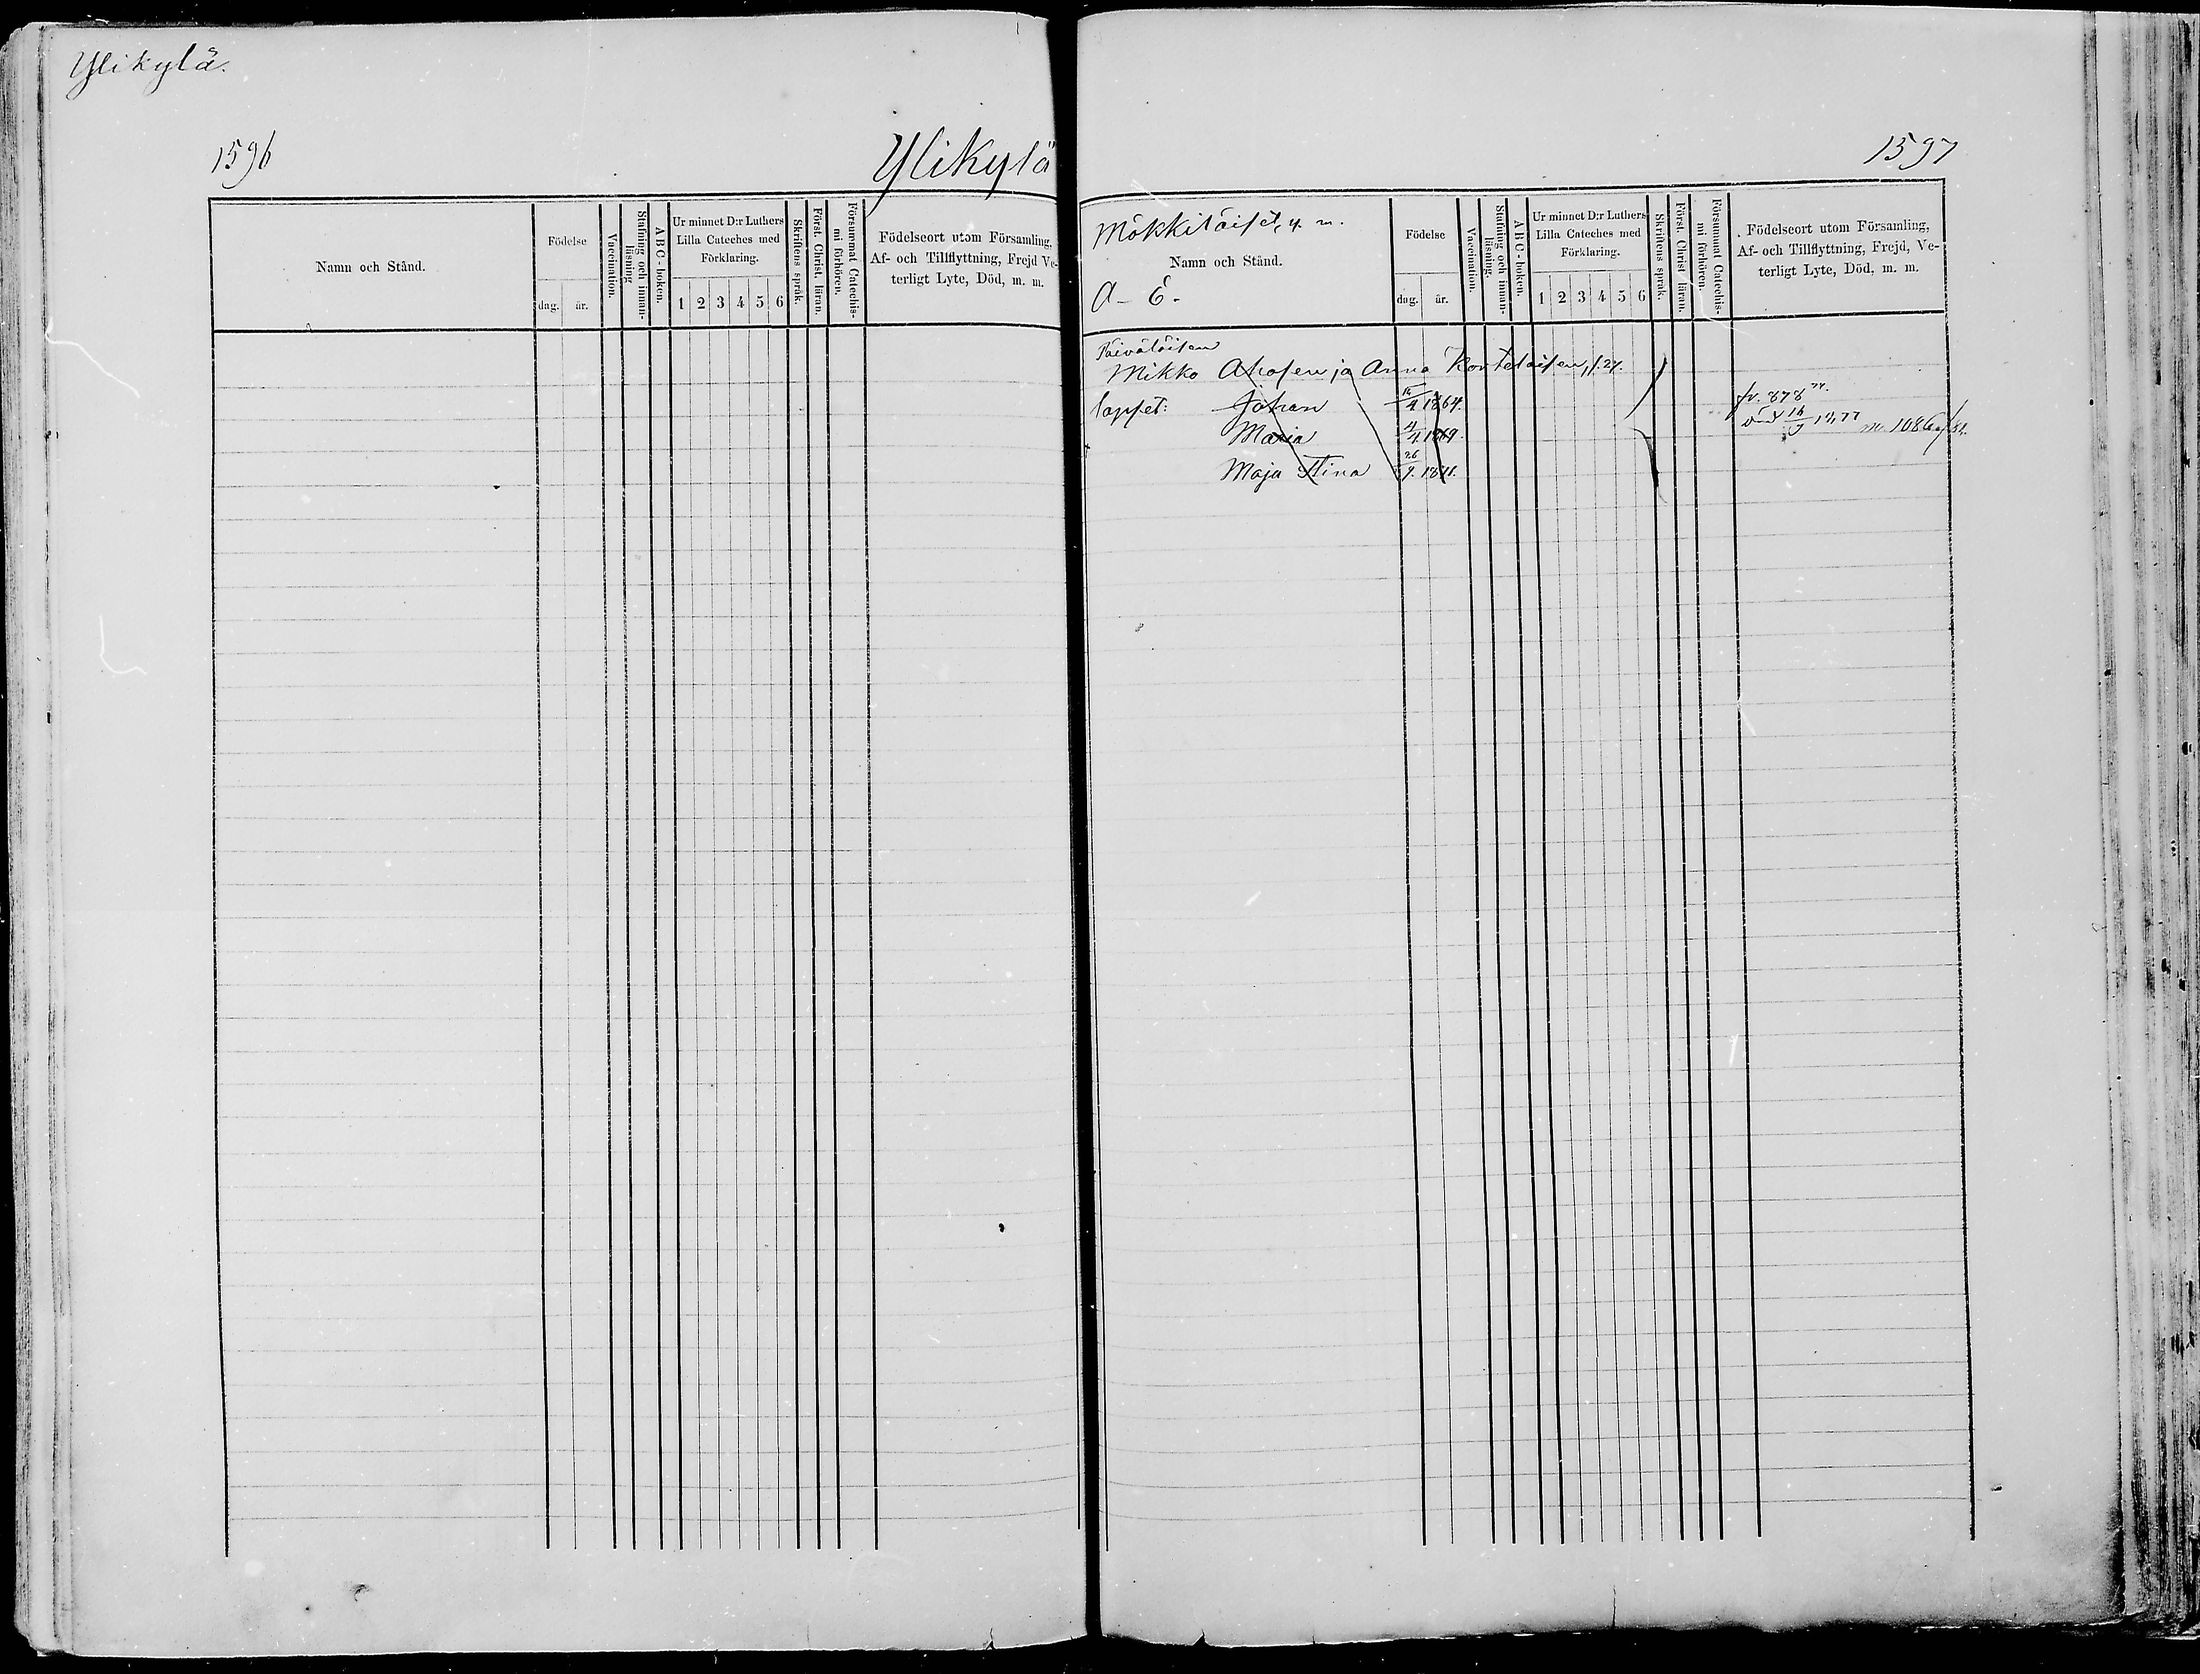 Ylikylä.
1596
Ylikylä
Namn och Stånd.
Födelse
dag.
år.
Vaccination.
Stafning och innan-
läsning
ABC-boken.
Ur minnet D:r Luthers
Lilla Cateches med
Förklaring.
1 2 3 4 5 6
Skriftens språk.
Först. Christ. läran.
Försummat Catechis-
mi förhören.
Födelseort utom Församling,
Af- och Tillflyttning, Frejd Ve-
terligt Lyte, Död, m. m.
1597
Mökkiläiset, y. m.
Namn och Stånd.
A – E.
Födelse
dag.
år.
Vaccination.
Stafning och innan-
läsning.
ABC-boken.
Ur minnet D:r Luthers
Lilla Cateches med
Förklaring.
1 2 3 4 5 6
Skriftens språk.
Först. Christ läran.
Försummat Catechis-
mi förhören.
Födelseort utom Församling,
Af- och Tillflyttning, Frejd, Ve-
terligt Lyte, Död, m. m.
Päiväläisen
Mikko Ahosen ja Anna Kortelaisen,
lapset: Johan 1864.
fr. 878
Maria 4/4 1869.
16/9 1877 1086
Maja Stina 26/9. 1871.